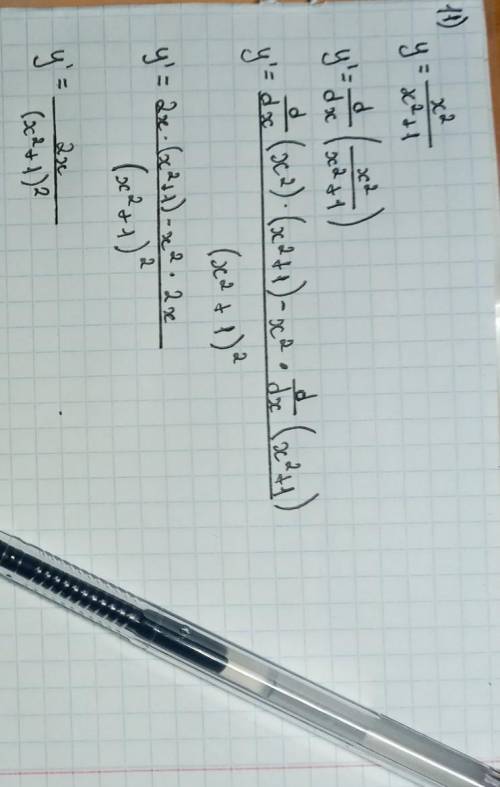 11)
y = x²/(x²+1)
y' = d/dx (x²/(x²+1))
y' = (d/dx (x²) · (x²+1) - x² · d/dx (x²+1))/(x²+1)²
y' = (2x · (x²+1) - x² · 2x)/(x²+1)²
y' = 2x/(x²+1)²